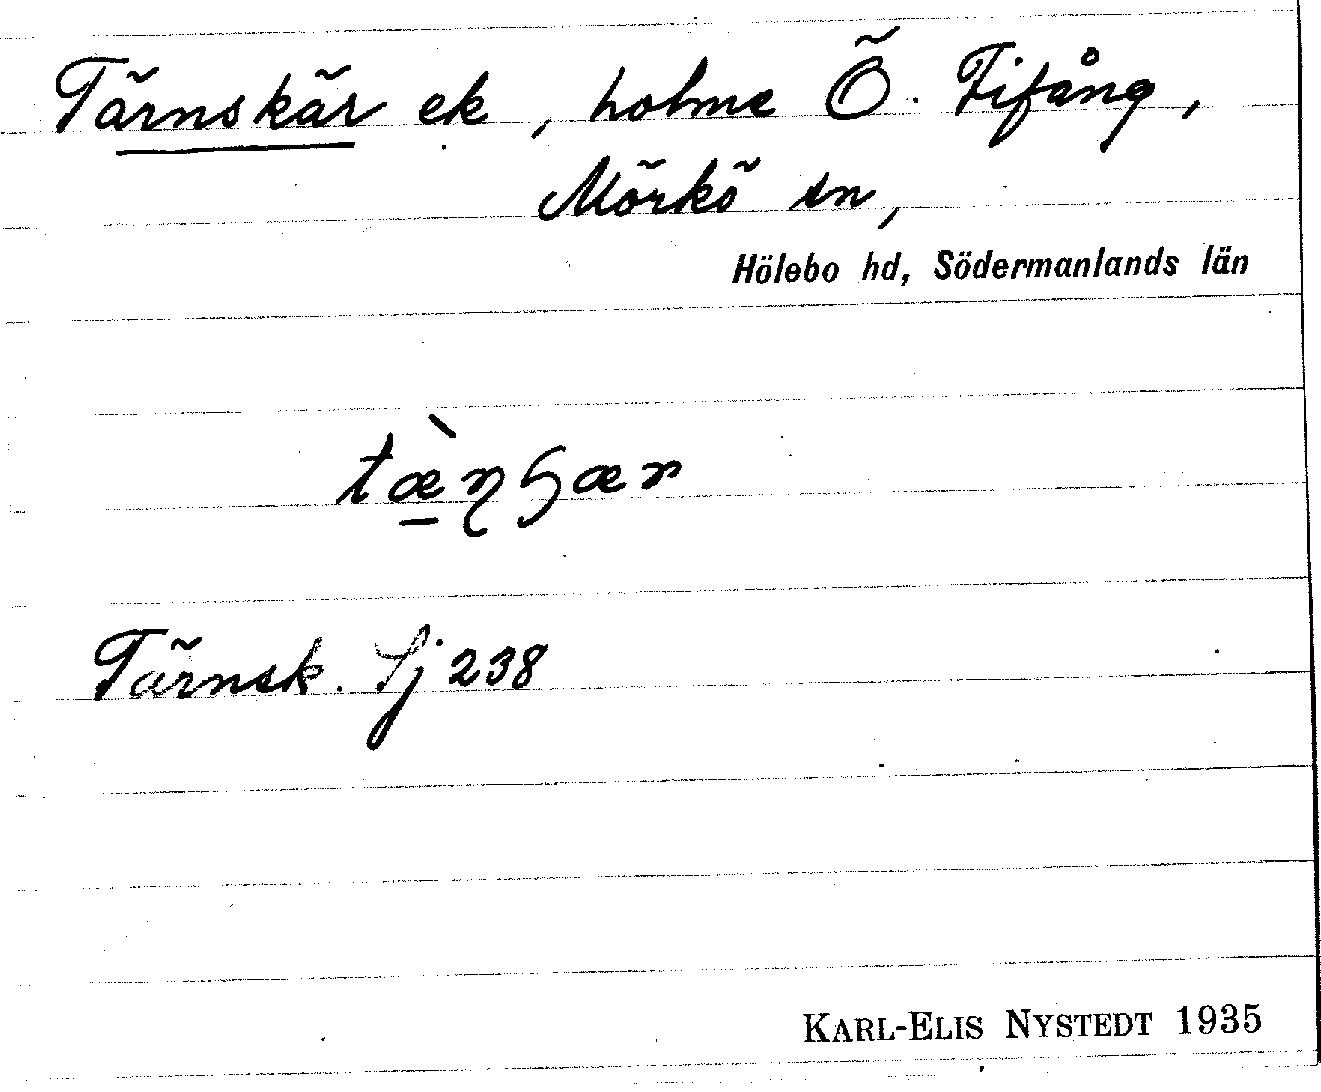 Tärnskär ek, holme Ö. Fifång,
Mörkö sn,
Hölebo hd, Södermanlands län
tæ̀ɳɧær
Tärnsk. Sj 238
KARL-ELIS NYSTEDT 1935